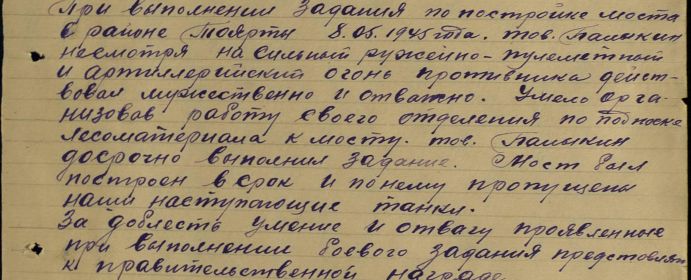 При выполнении задания по постройке моста
в районе Тоярты 8.05.1945 года. тов. Палыкин
несмотря на сильный ружейно-пулеметный
и артиллерийский огонь противника дейст-
вовал мужественно и отважно. Умело орга-
низовав работу своего отделения по подноске
лесоматериала к мосту. тов. Палыкин
досрочно выполнил задание. Мост был
построен в срок и по нему пропущены
наши наступающие танки.
За доблесть умение и отвагу проявленные
при выполнении боевого задания представлять
к правительственной награде